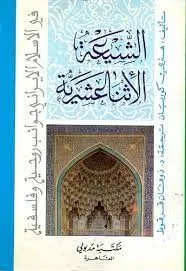 الشيعة
الإثنا عشرية
تأليف: هنري كوربان ترجمة: د. ذوقان قرقوط
في الإسلام الإيراني جوانب روحية وفلسفية
مكتبة مدبولي
القاهرة